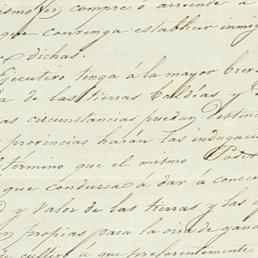 compre ó arriende a
que convenga establecer inmig
dichas.
Ejecutivo tenga á la mayor brev
de las tierras baldías y
as circunstancias puedan destin
provincias harán las indagacio
termino que el mismo Poder
que conduzca á dar á conoce
y valor de las tierras y las
propias para la cria de gana
á que preferentemente